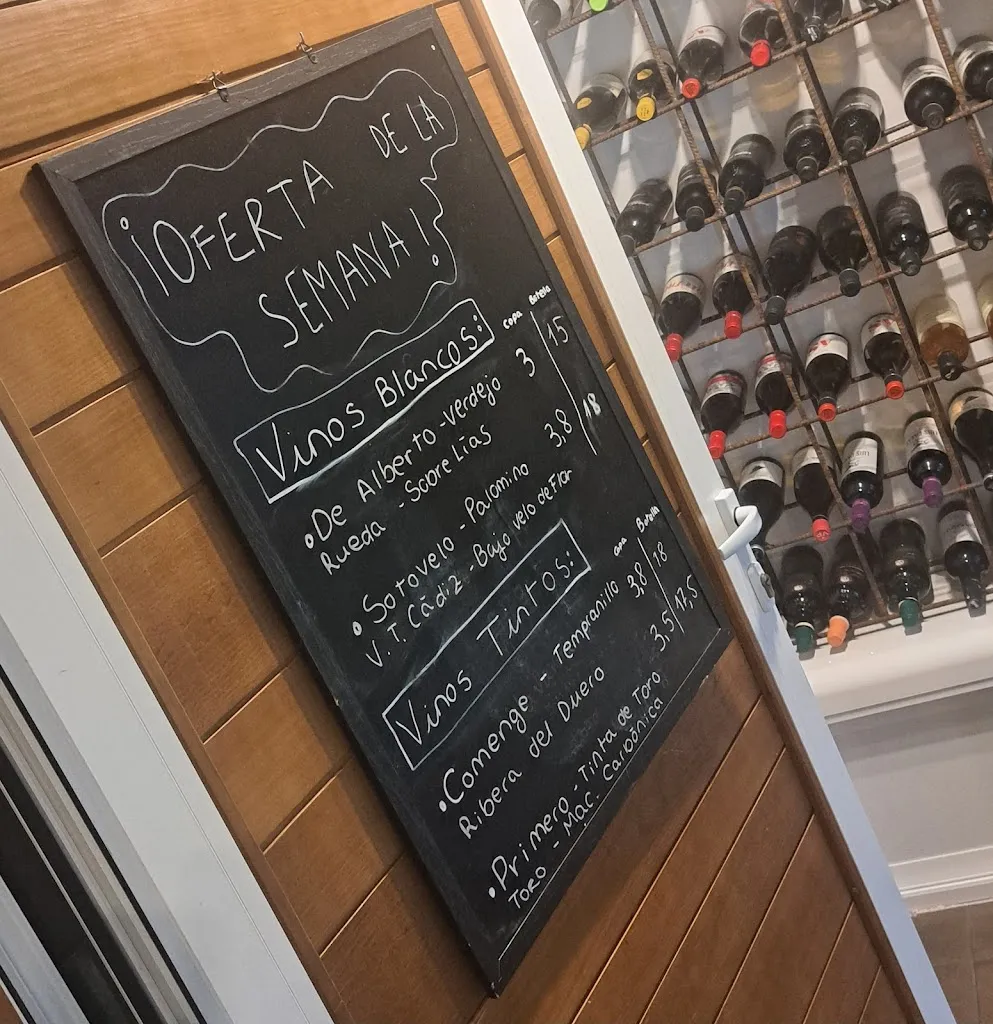 ¡OFERTA DE LA
SEMANA!
Vinos Blancos: copa Botella
• De Alberto - verdejo 3 15
Rueda - Sobre Lías
• Sotovelo - Palomino 3,8 18
V.T. Cádiz - Bajo velo de Flor
Vinos Tintos: copa Botella
• Comenge - Tempranillo 3,8 18
Ribera del Duero
• Primero - Tinta de Toro 3,5 17,5
TORO - Mac. Carbónica